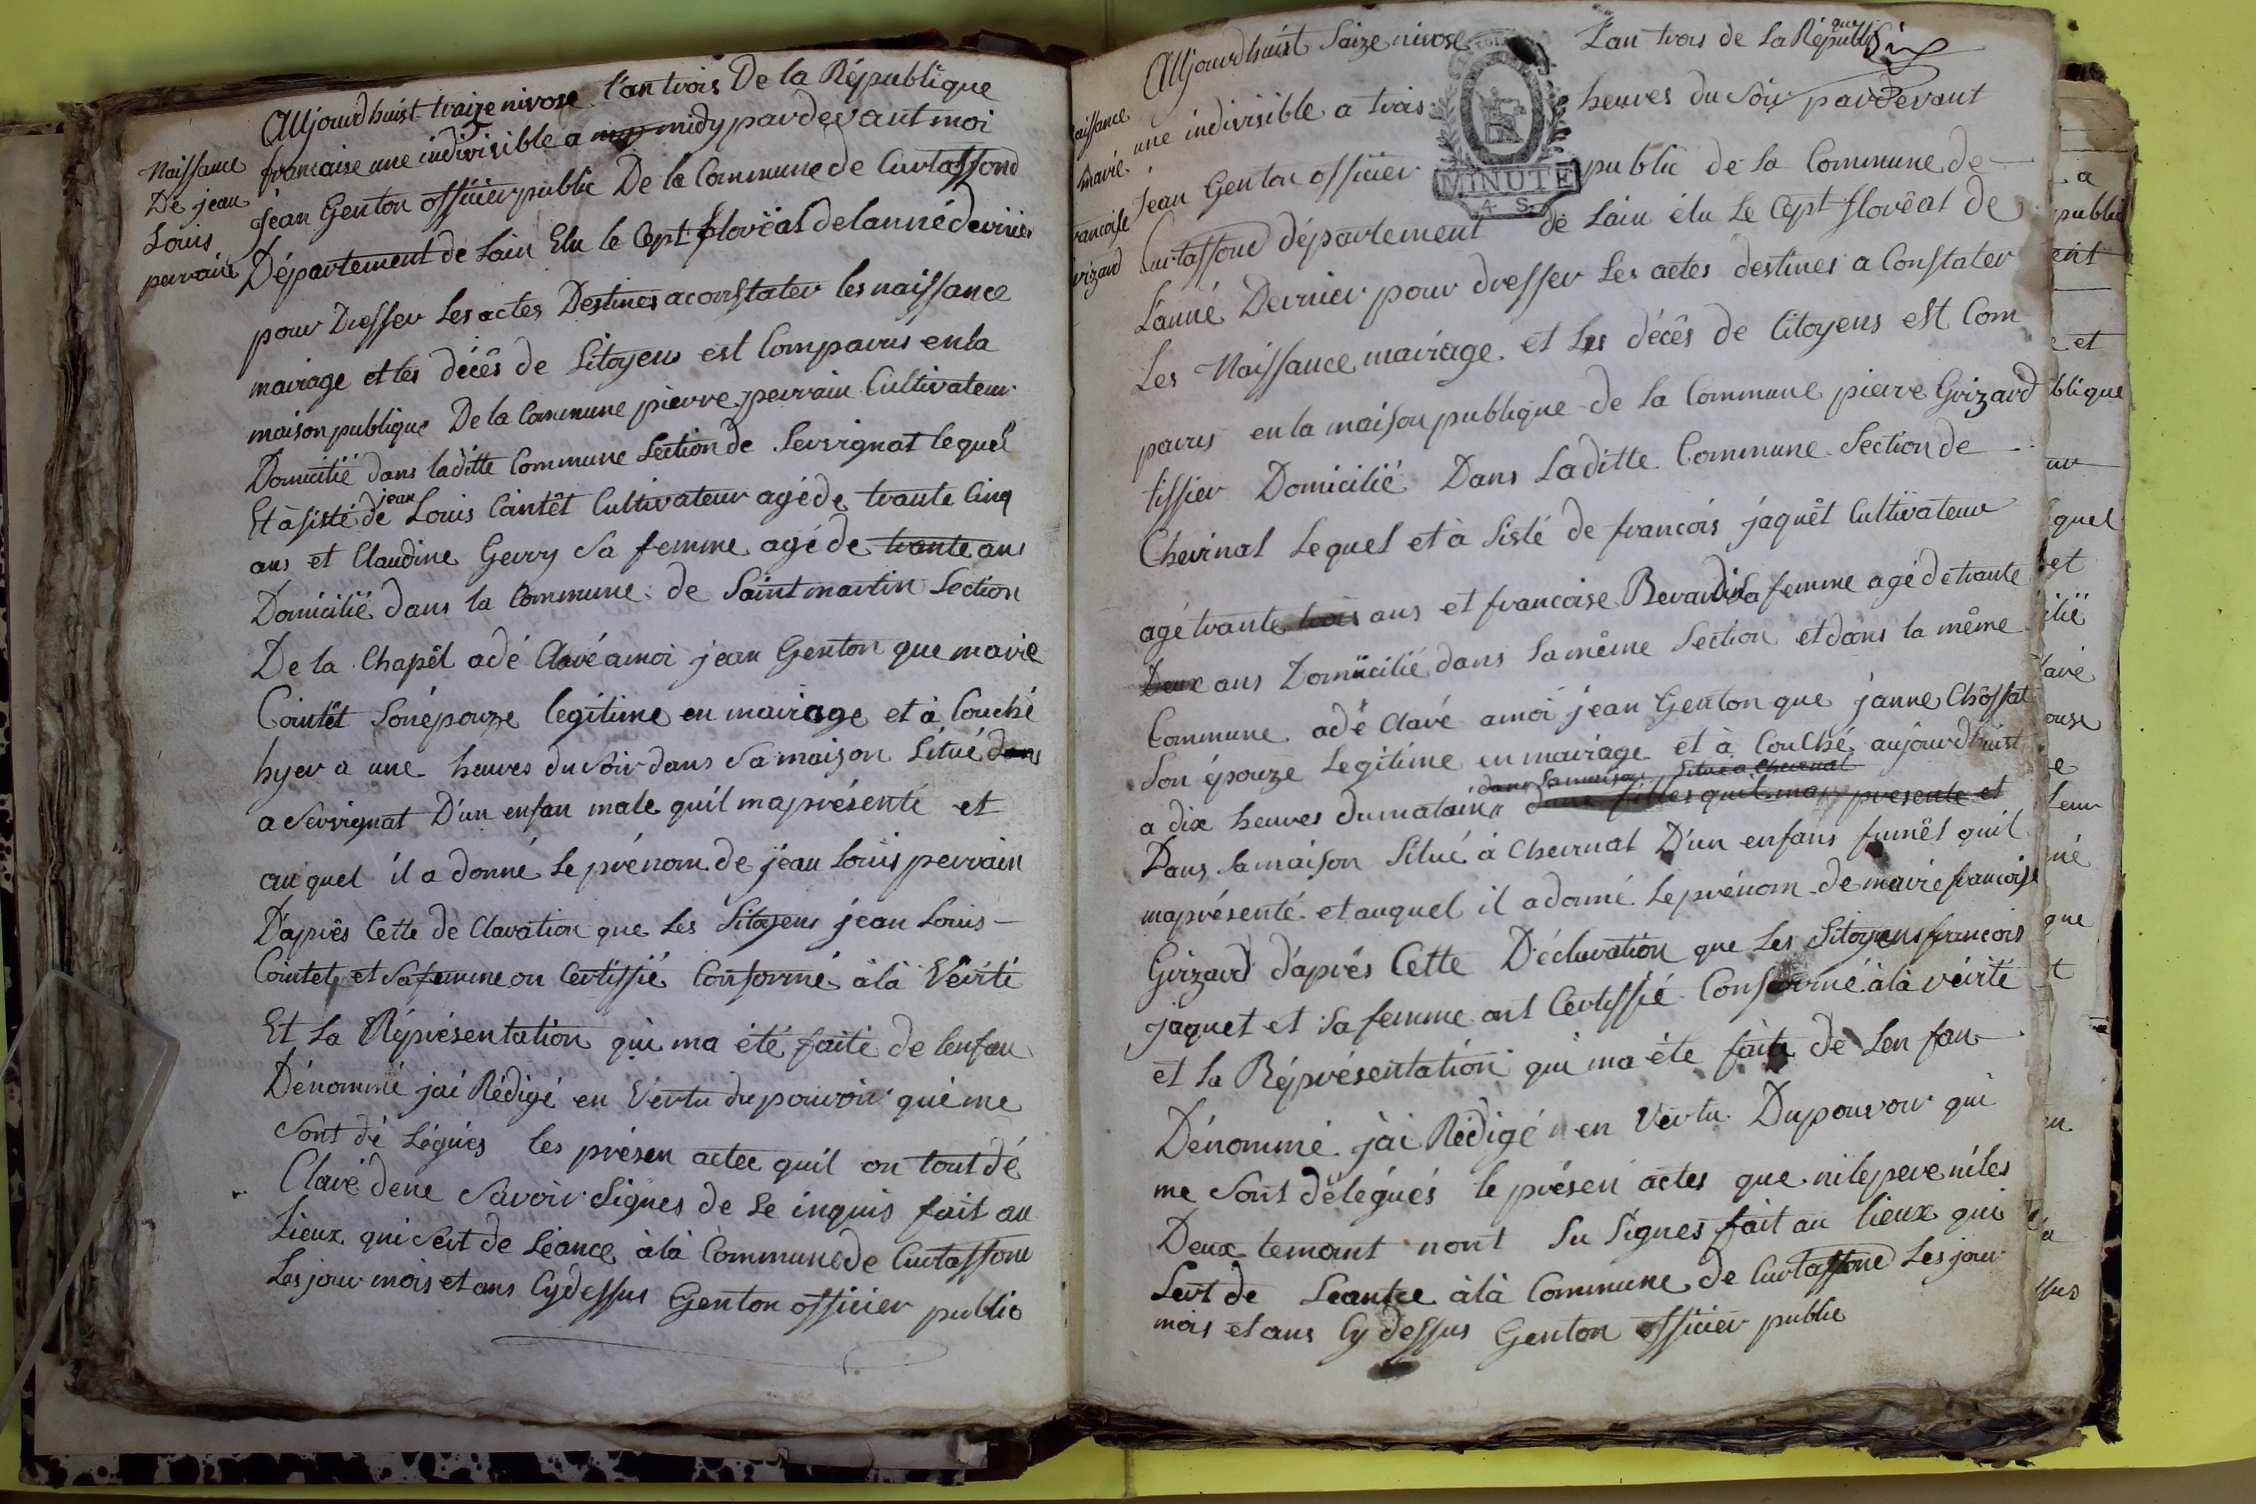 Naissance
De jean
Louis
perrain
Aujourdhuist traize nivose l'an trois De la République
francaise une indivisible a midy pardevant moi
Jean Genton officier public De la Commune de Curtaffond
Département de Lain Elu le Cept floréal de lanné dernier
pour Dresser Les actes Destines a constater les naissance
mairage et les décês de Sitoyens est Comparus en la
maison publique De la Commune pierre perrain Cultivateur
Domicilié dans laditte Commune Section de Servignat lequel
Et àsisté de jean Louis Cointêt Cultivateur agé de trante Cinq
ans et Claudine Gerry Sa femme agé de trante ans
Domicilié dans la Commune de Saint martin Section
De la Chapêl adé Claré a moi jean Genton que marie
Cointêt Son épouze legitime en mairage et à Couché
hyer a une heures du Soir dans Sa maison Situé dans
a Servignat D'un enfan male quil ma présenté et
au quel il a donné le prénom de jean Louis perrain
D'aprês Cette dé Claration que les Sitoyens jean Louis
Cointet et Sa femme on Certiffié Conformé àlà Vérité
Et la Réprésentation qui ma été faite de lenfan
Dénommé jai Rédigé en Vertu du pouvoir qui me
Sont dé Légués les présen actee quil on tout dé
Claré de ne Savoir Signes de Se inquis fait au
Lieux qui Sert de Séance àlà Commune de Curtaffond
Les jour mois et ans Cydessus Genton officier public
Six
naissance
marie
francoise
Grizard
MINUTE
4. S.
Aujourdhuist Saize nivose L'an trois de La Républi que
une indivisible a trois heures du Soir pardevant
Jean Genton officier public de la Commune de
Curtaffond département de Lain élu Le Cept floréal de
L'anné Dernier pour dresser Les actes destines a Constater
Les Naissance mairage et Les décês de Citoyens est Com
parus en la maison publique de la Commune pierre Grizard
tissier Domicilié Dans Laditte Commune Section de
Chevinal Lequel et à Sisté de francois jaquêt Cultivateur
agé trante trois ans et francoise Revardi Sa femme agé de trante
Deux ans Domicilié dans la même Section et dans la même
Commune adé Claré a moi jean Genton que janne Chôssat
Son épouze Legitime en mairage et à Couché aujourdhuist
dans Sa maison Situé a Chevenal
a dix heures du matain dune filles quil ma presente et
Dans la maison Situé à Chevinal D'un enfans fumêl quil
ma présenté et auquel il a donné Le prénom de marie francoise
Grizard d'aprês Cette Déclaration que Les Sitoyens francois
jaquet et Sa femme ont Certiffié Conformé àlà vérité
et la Réprésentation qui ma éte faite de Len fan
Dénommé jài Rédigé en Vertu Du pouvoir qui
me Sont délegués le présen actes que ni le pere ni les
Deux temoint nont Su Signes fait au lieux qui
Sert de Seance àlà Commune de Curtaffond Les jour
mois et ans Cy dessus Genton officier public